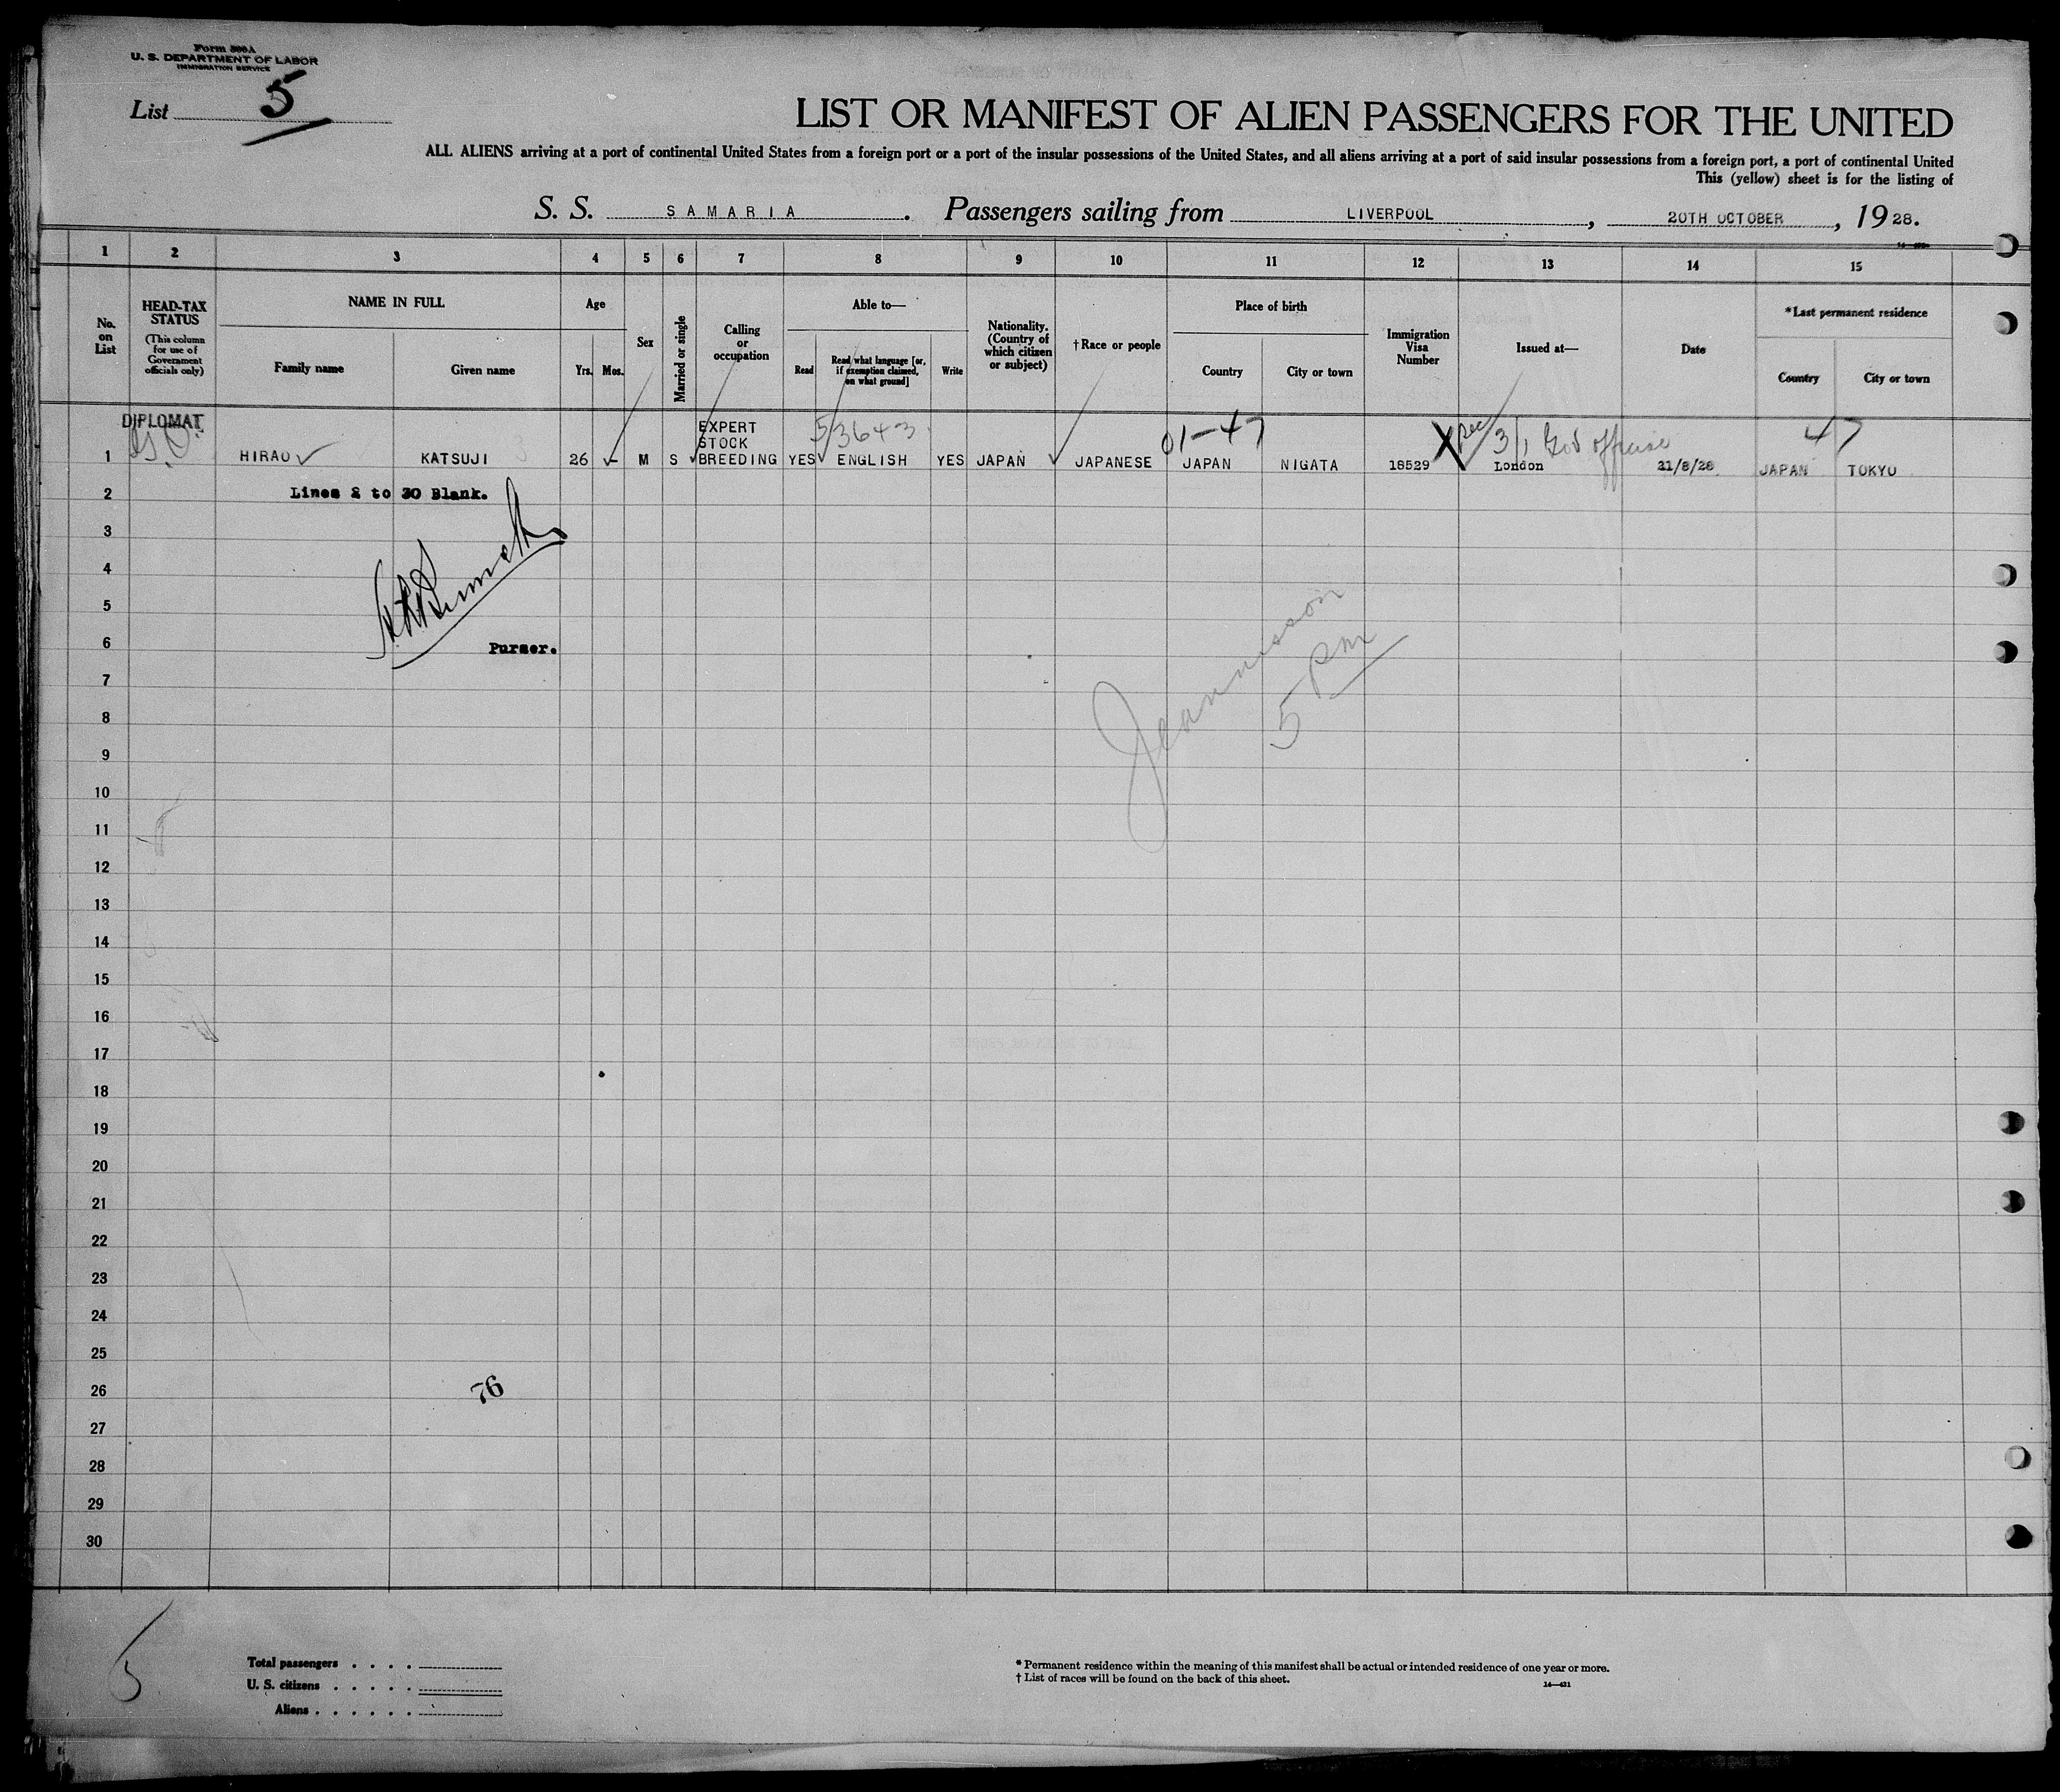 Form 500A
U. S. DEPARTMENT OF LABOR
IMMIGRATION SERVICE
List 5
LIST OR MANIFEST OF ALIEN PASSENGERS FOR THE UNITED
ALL ALIENS arriving at a port of continental United States from a foreign port or a port of the insular possessions of the United States, and all aliens arriving at a port of said insular possessions from a foreign port, a port of continental United
This (yellow) sheet is for the listing of
S. S. SAMARIA. Passengers sailing from LIVERPOOL, 20TH OCTOBER, 1928.
1 2 3 4 5 6 7 8 9 10 11 12 13 14 15
No. on List
HEAD-TAX STATUS
(This column for use of Government officials only)
NAME IN FULL
Family name Given name
Age
Yrs. Mos.
Sex
Married or single
Calling or occupation
Able to—
Read
Read what language [or, if exemption claimed, on what ground]
Write
Nationality. (Country of which citizen or subject)
†Race or people
Place of birth
Country City or town
Immigration Visa Number
Issued at—
Date
*Last permanent residence
Country City or town
DIPLOMAT
53643
01-47
3/1 Gov official
47
1 HIRAO KATSUJI 26 - M S EXPERT STOCK BREEDING YES ENGLISH YES JAPAN JAPANESE JAPAN NIGATA 18529 London 21/8/28 JAPAN TOKYO
2 Lines 2 to 30 Blank.
3
4
5
6 Purser.
Jeannisson
5 pm
7
8
9
10
11
12
13
14
15
16
17
18
19
20
21
22
23
24
25
26
76
27
28
29
30
5
Total passengers . . . .
U. S. citizens . . . . .
Aliens . . . . . .
* Permanent residence within the meaning of this manifest shall be actual or intended residence of one year or more.
† List of races will be found on the back of this sheet.
14—431